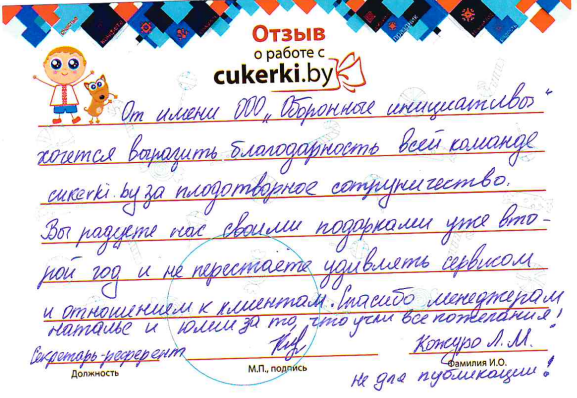 Отзыв
о работе с
cukerki.by
От имени ООО „Оборонные инициативы“
хочется выразить благодарность всей команде
cukerki.by за плодотворное сотруничество.
Вы радуете нас своими подарками уже вто-
рой год и не перестаёте удивлять сервисом
и отношением к клиентам. Спасибо менеджерам
наталье и юлии за то, что учли все пожелания!
Секретарь-референт
Кожуро Л.М.
Должность
М.П., подпись
Фамилия И.О.
не для публикации!